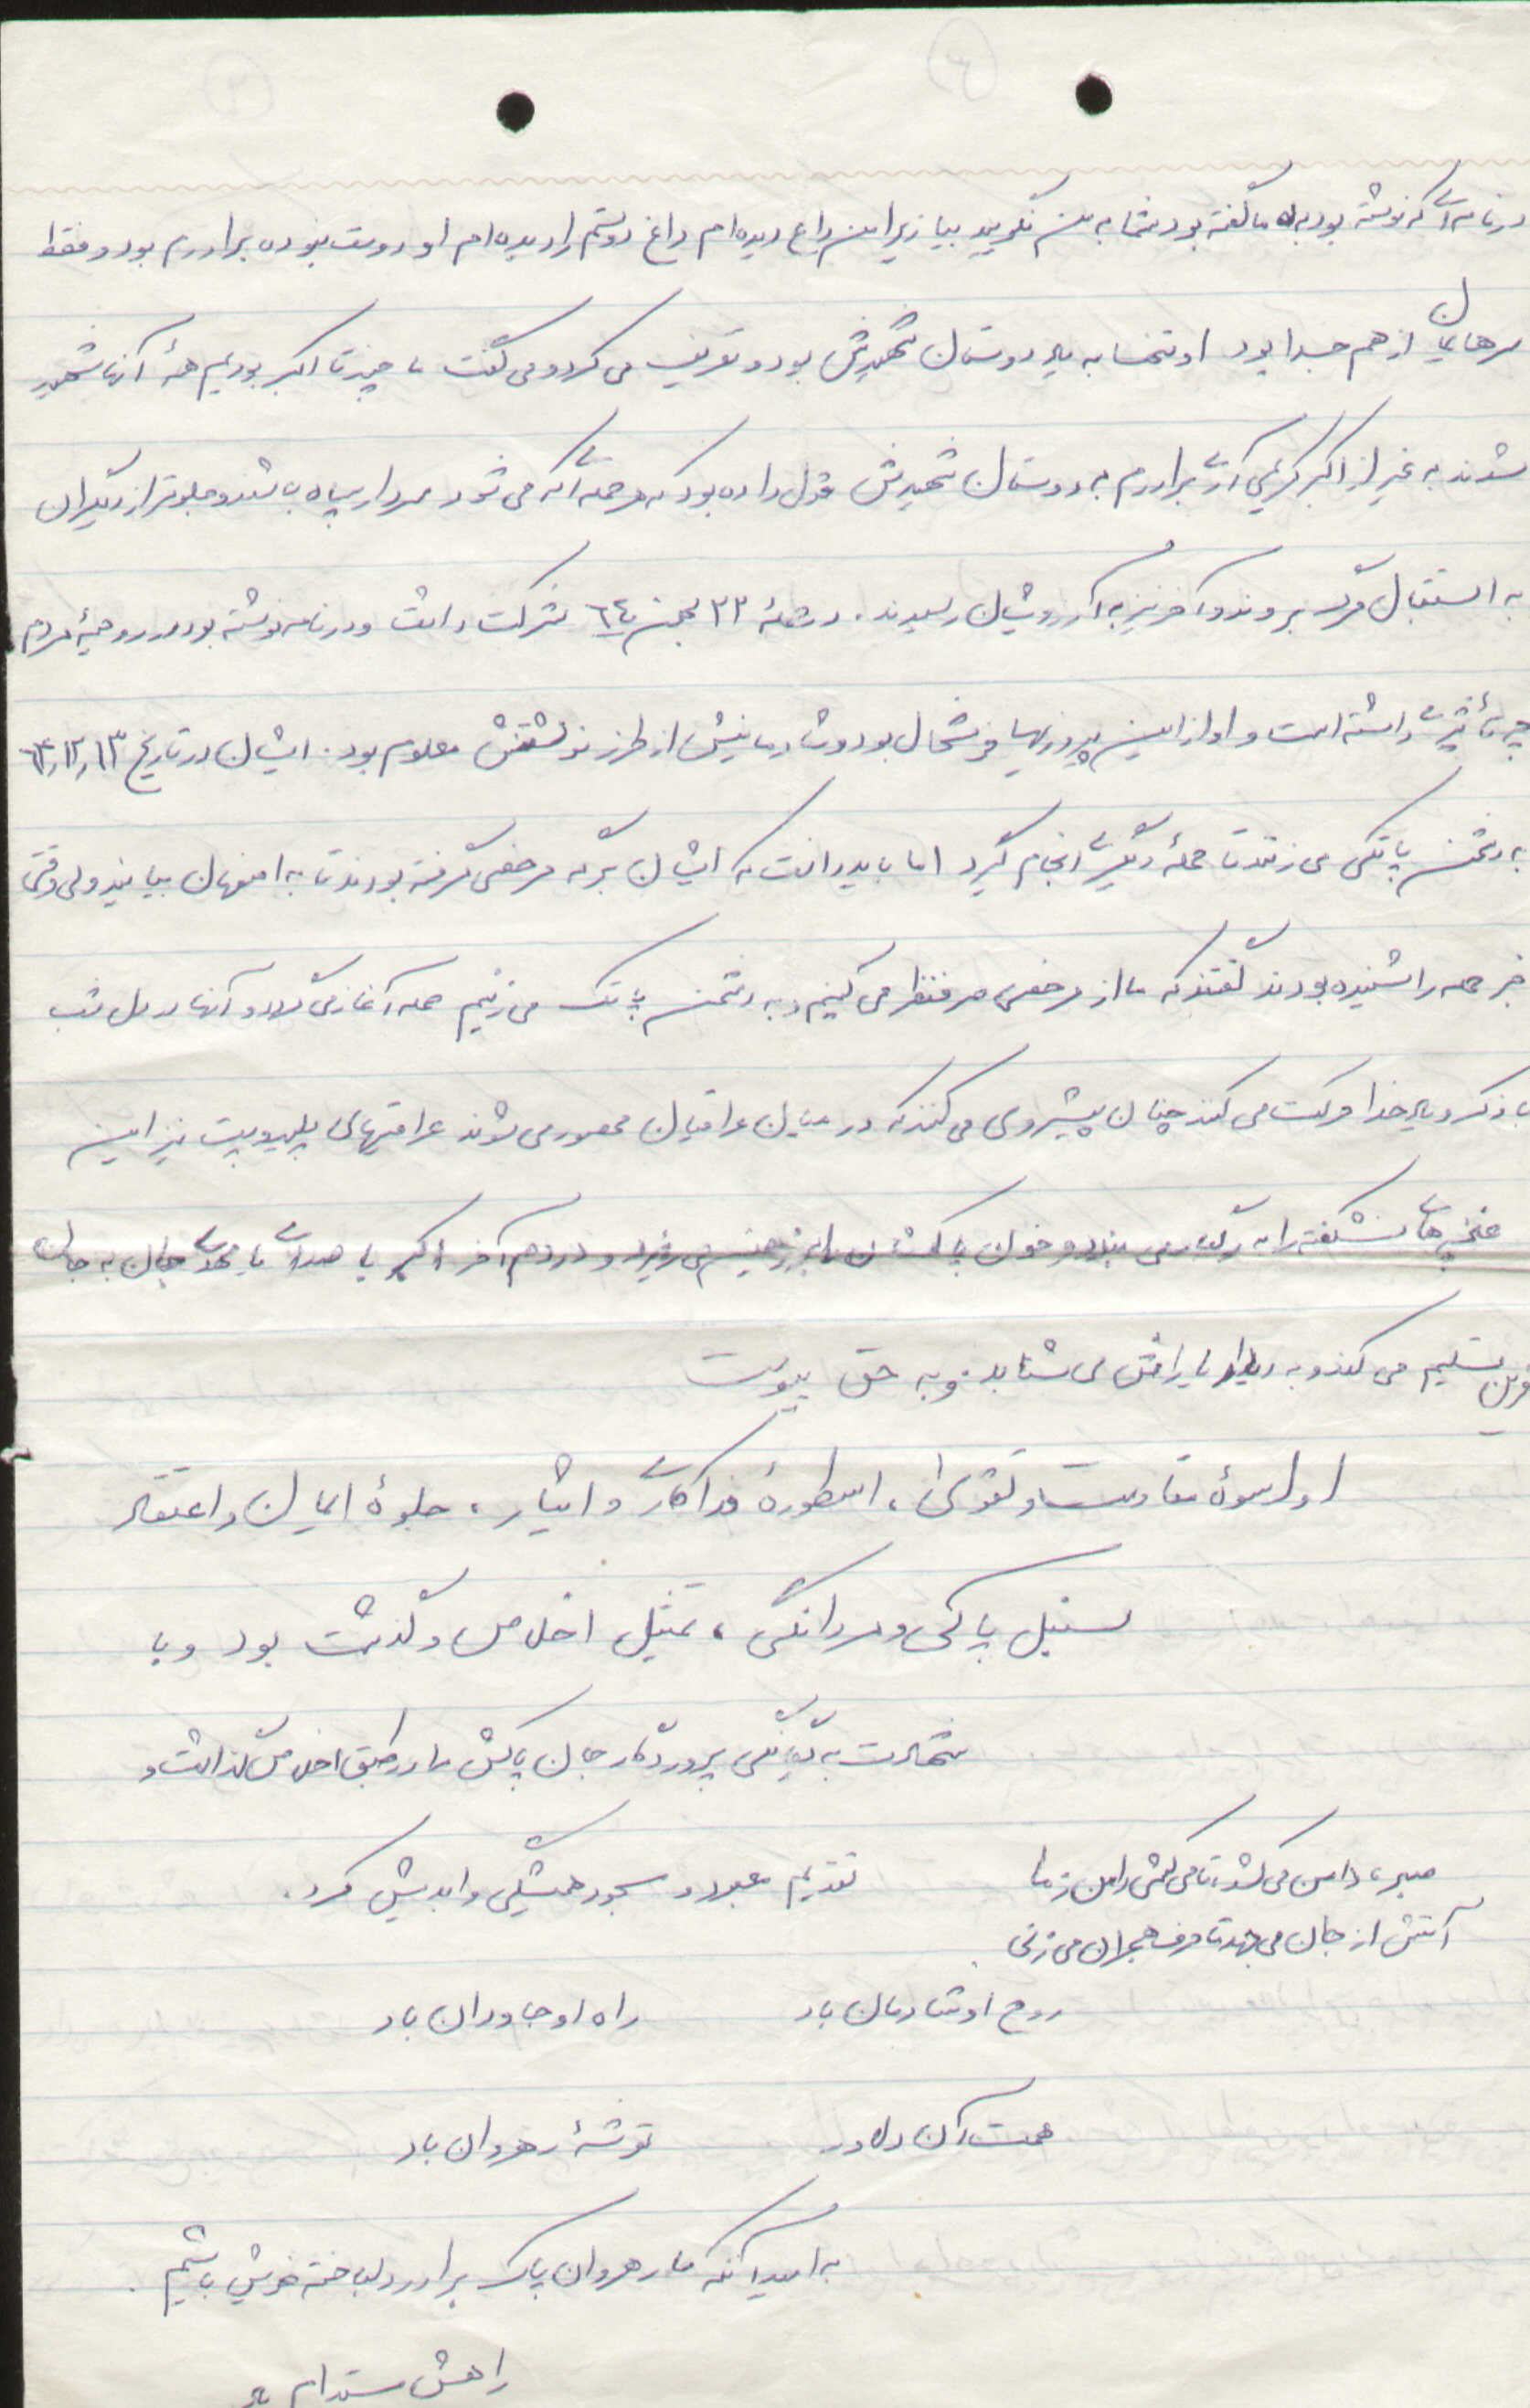 در نامه‌ای که نوشته بود به ما گفته بود شما به من نگویید بیا زیرا من داغ دیده‌ام داغ دوستم را دیده‌ام او دوست نبوده برادرم بود و فقط
سرهایمان از هم جدا بود او تنها به یاد دوستان شهیدش بود و تعریف می کرد و می گفت ما چند تا اکبر بودیم همهٔ آنها شهید
شدند به غیر از اکبر کریمی آری برادرم به دوستان شهیدش قول داده بود که در حمله‌ای که می شود سردار سپاه باشند و جلوتر از دیگران
به استقبال مرگ بروند و آخر نیز به آرزویشان رسیدند. در حملهٔ ۲۲ بهمن ۶۴ شرکت داشت و در نامه نوشته بود در روحیهٔ مردم
چه تأثیری داشته است و او از این پیروزیها خوشحال بود و شادمانیش از طرز نوشتنش معلوم بود. ایشان در تاریخ ۶۴/۱۲/۱۳
به دشمن پاتکی می زنند تا حملهٔ دیگری انجام گیرد اما باید دانست که ایشان برگه مرخصی گرفته بودند تا به اصفهان بیایند ولی وقتی
خبر حمله را شنیده بودند گفتند که ما از مرخصی صرفنظر می کنیم و به دشمن پاتک می زنیم حمله آغاز می گردد و آنها در دل شب
با ذکر و یاد خدا حرکت می کنند چنان پیشروی می کنند که در میان عراقیان محصور می شوند عراقیهای پلید و پست نیز این
غنچه‌های نشکفته را به رگبار می بندد و خون پاکشان را بر زمین می ریزد و در دم آخر اکبر با صدای یا مهدی جان به جان
آفرین تسلیم می کند و به دیدار یارانش می شتابد. و به حق پیوست
او اسوهٔ مقاومت و تقوی، اسطورهٔ فداکاری و ایثار، جلوهٔ ایمان و اعتقاد
سنبل پاکی و مردانگی، تمثیل اخلاص و گذشت بود و با
شهادت به یگانگی پروردگار جان پاکش را در طبق اخلاص گذاشت و
تقدیم معبود و سجود همیشگی و ابدیش کرد.
صبر، دامن می کشد، تا می کشی دامن ز ما
آتش از جان می جهد تا حرف هجران می زنی
روح او شادمان باد راه او جاودان باد
همت آن دلاور توشهٔ رهروان باد
به امید آنکه ما رهروان پاک برادر دلباخته خویش باشیم.
راهش مستدام باد